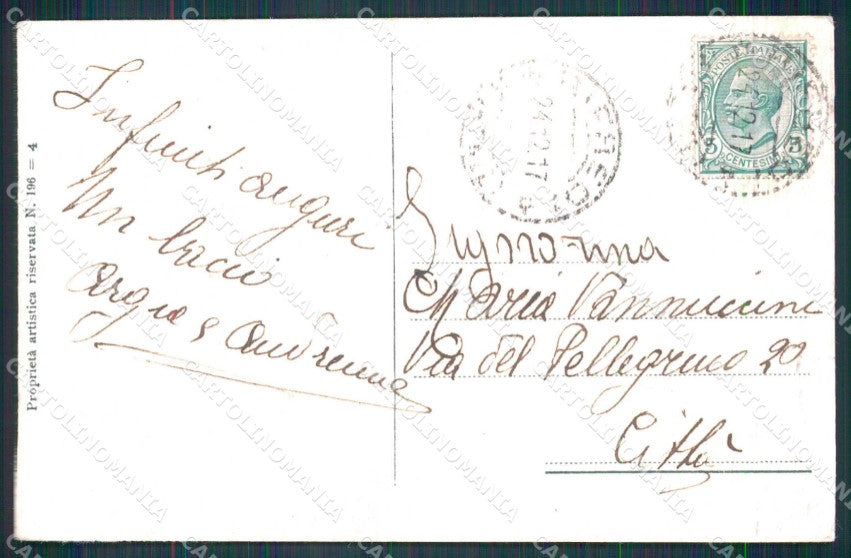 Infiniti auguri
Un bacio
Argia e
Proprietà artistica riservata. N. 196 = 4
24.12.17
POSTE ITALIANE
24.12.17
5 5
CENTESIMI
Signorina
Maria Vannuccini
Via del Pellegrino 20
Città
CARTOLINOMANIA